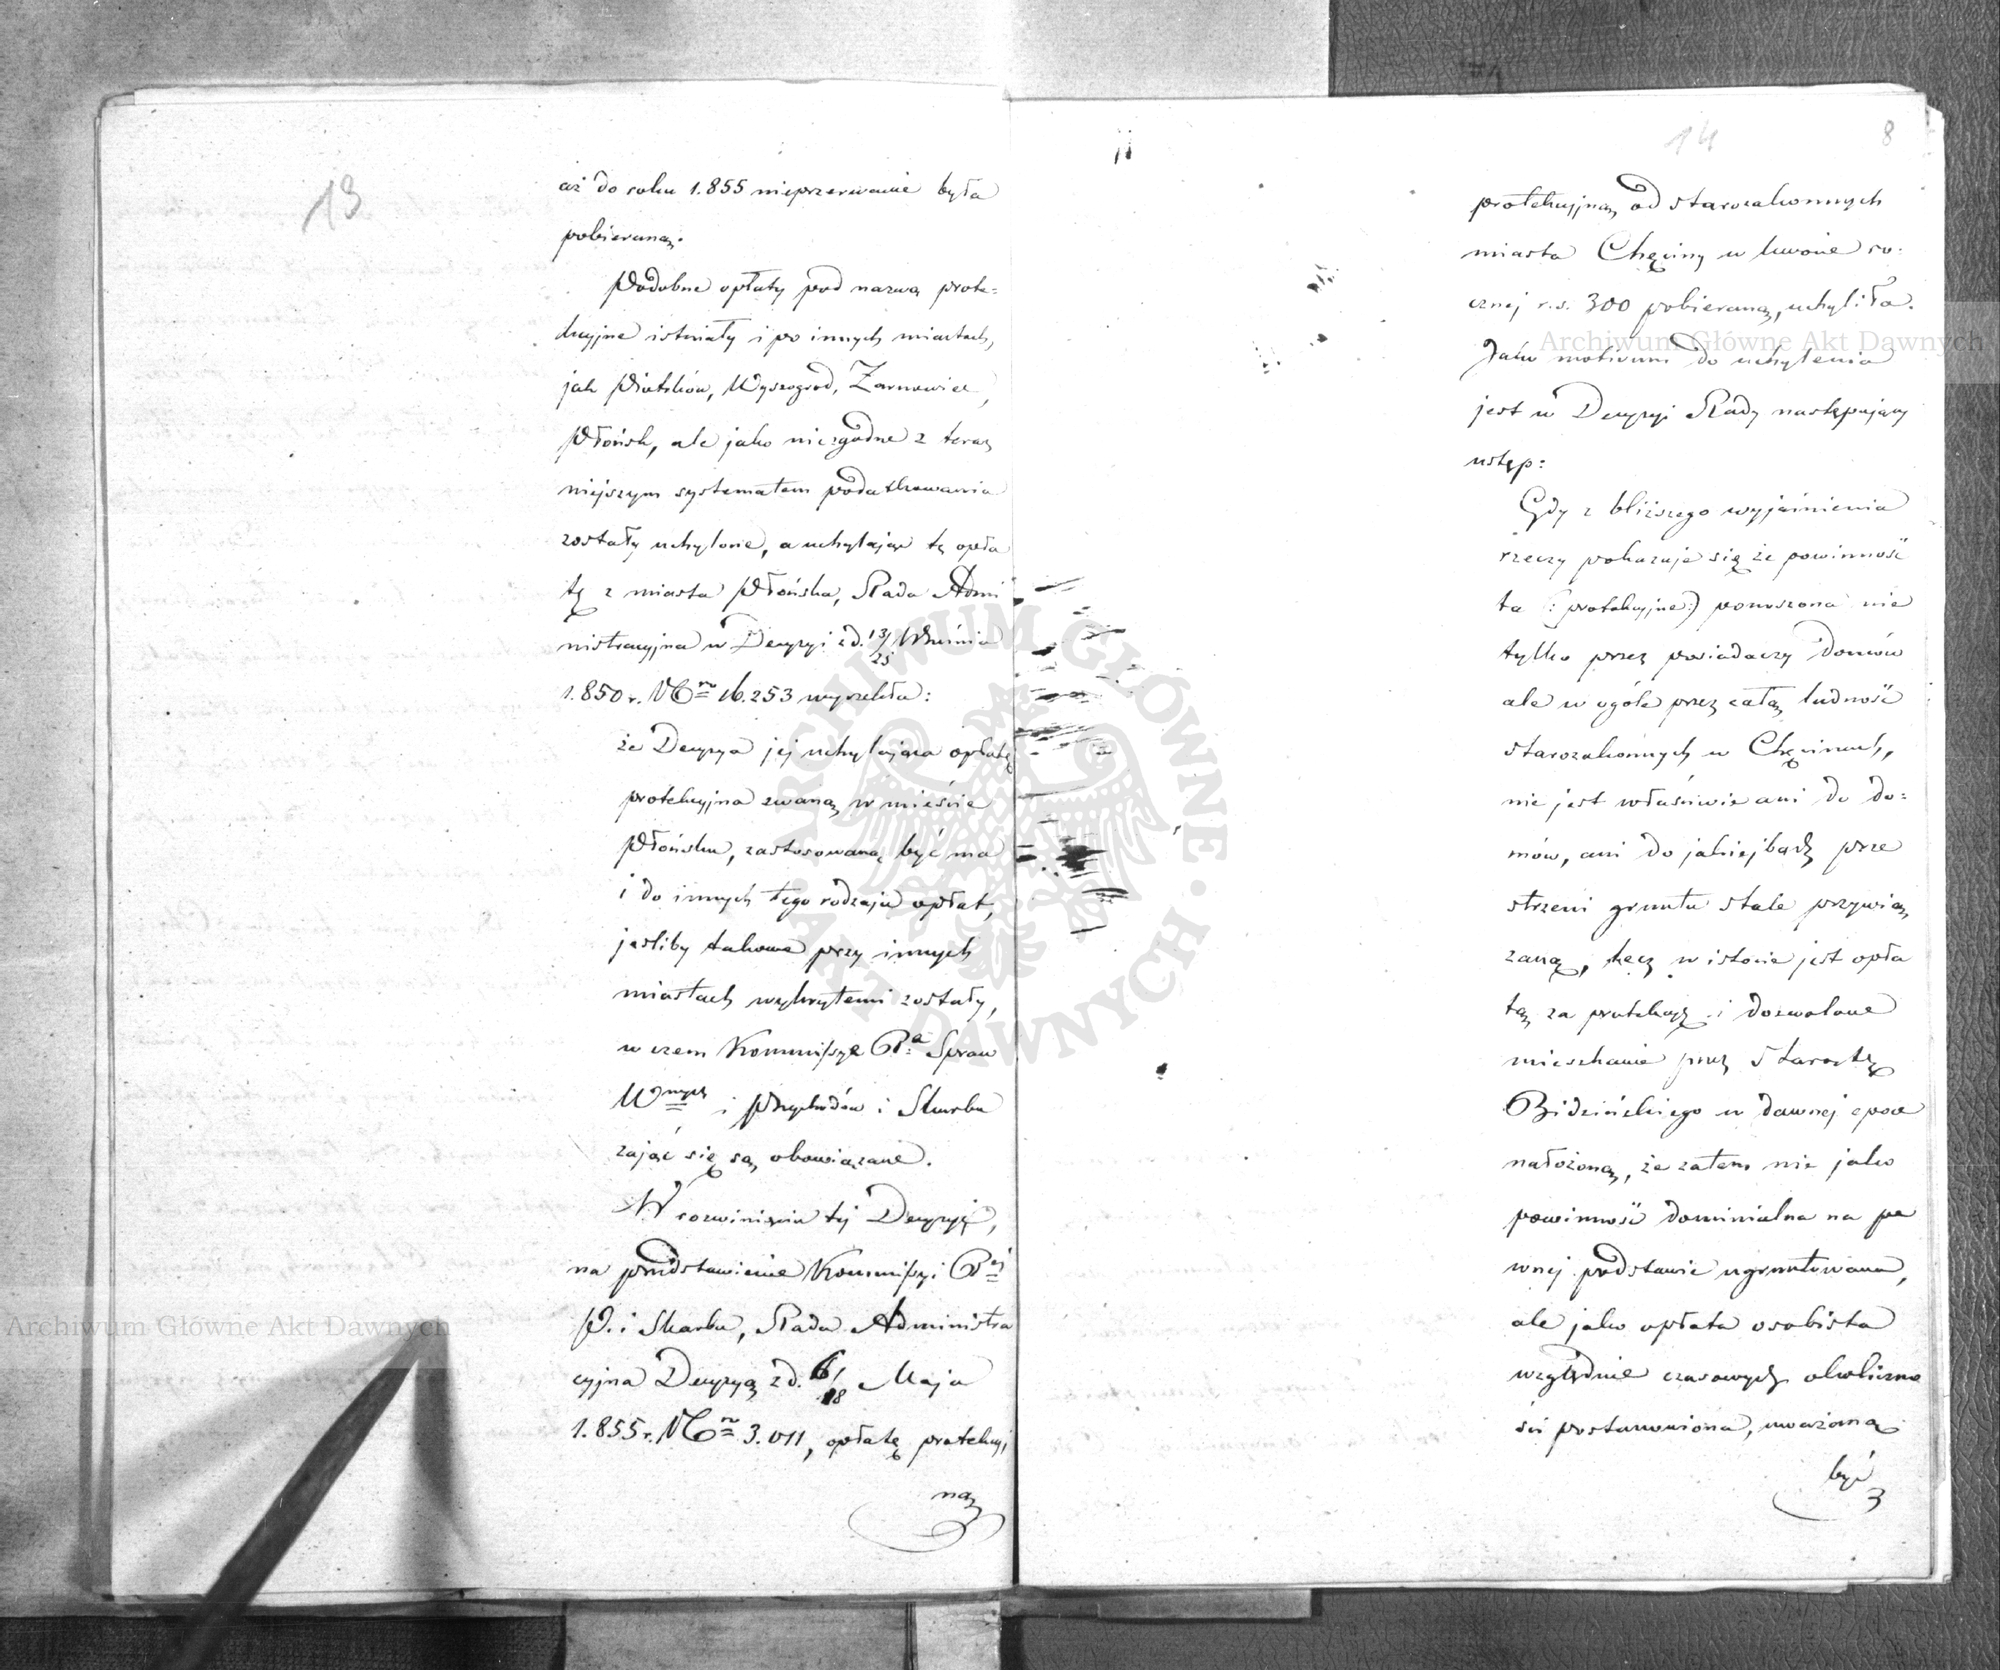 13
aż do roku 1.855 nieprzerwanie była
pobieraną.
Podobne opłaty pod nazwą prote-
kcyjne istniały i po innych miastach,
jak Piotrków, Wyszogród, Żarnowiec,
Płońsk, ale jako niezgodne z teraz
niejszym systematem podatkowania
zostały uchylone, a uchylając tę opła
tę z miasta Płońska, Rada Admi
nistracyjna w Decyzyi z d. 13/25 Września
1.850 r. N<sup>ro</sup> 16.253 wyrzekła:
że Decyzya jej uchylająca opłatę
protekcyjną zwaną w mieście
Płońsku, zastosowaną być ma
i do innych tego rodzaju opłat,
jeśliby takowe przy innych
miastach wykrytemi zostały,
w czem Kommissye R<sup>e</sup> Spraw
W<sup>nych</sup> i Przychodów i Skarbu
zająć się są obowiązane.
W rozwinięciu tej Decyzyi,
na przedstawienie Kommissyi R<sup>ej</sup>
P. i Skarbu, Rada Administra
cyjna Decyzyą z d. 6/18 Maja
1.855 r. N<sup>ro</sup> 3.011, opłatę protekcyj
ną
14
8
protekcyjną od starozakonnych
miasta Chęciny w kwocie ro-
cznej r.s. 300 pobieraną, uchyliła.
Jako motivum do uchylenia
jest w Decyzyi Rady następujący
ustęp:
Gdy z bliższego wyjaśnienia
rzeczy pokazuje się że powinność
ta (: protekcyjne:) ponoszona nie
tylko przez posiadaczy domów
ale w ogóle przez całą ludność
starozakonnych w Chęcinach,
nie jest właściwie ani do do-
mów, ani do jakiejbądź prze
strzeni gruntu stale przywią
zaną, lecz w istocie jest opła
tą za protekcyę i dozwolone
mieszkanie przez Starostę
Bidzińskiego w dawnej epoce
nałożoną, że zatem nie jako
powinność dominialna na pe
wnej podstawie ugruntowana,
ale jako opłata osobista
względnie czasowych okoliczno
ści postanowiona, uważaną
być
Archiwum Główne Akt Dawnych
Archiwum Główne Akt Dawnych
ARCHIWUM GŁÓWNE AKT DAWNYCH